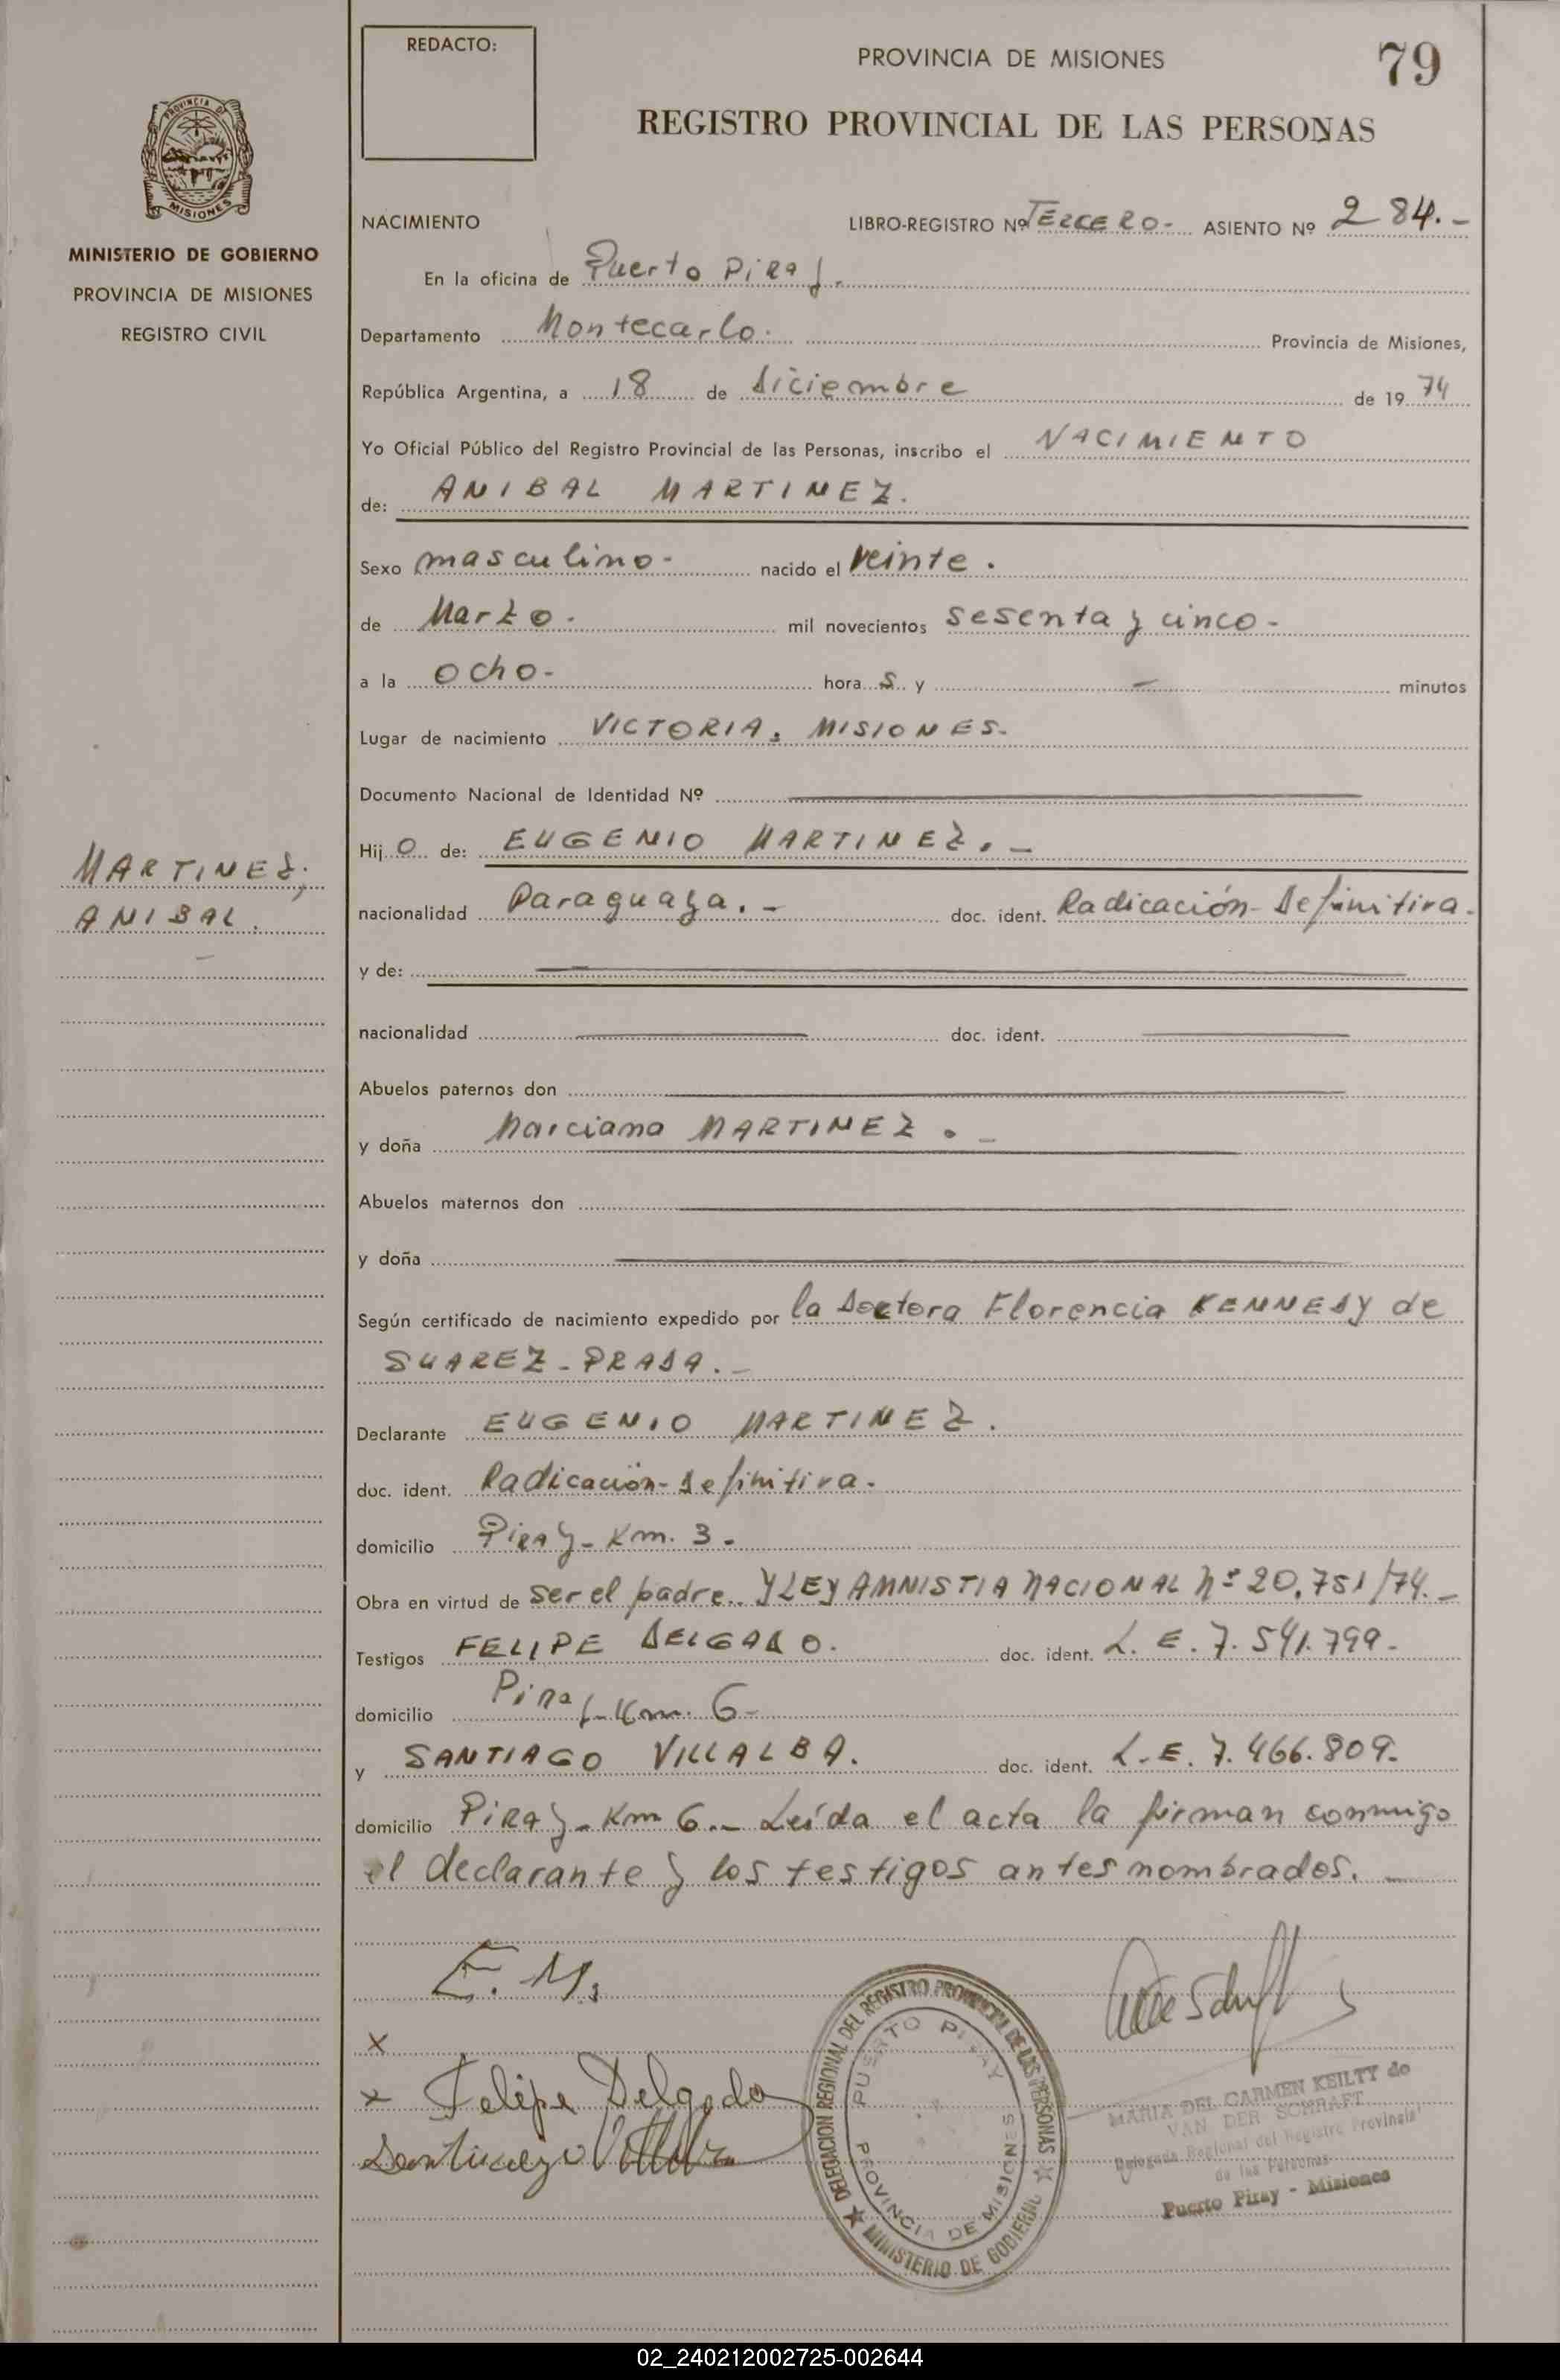 REDACTO:
PROVINCIA DE MISIONES
79
REGISTRO PROVINCIAL DE LAS PERSONAS
PROVINCIA DE
MISIONES
MINISTERIO DE GOBIERNO
PROVINCIA DE MISIONES
REGISTRO CIVIL
NACIMIENTO LIBRO-REGISTRO Nº TERCERO- ASIENTO Nº 284.-
En la oficina de Puerto Piray.
Departamento Montecarlo. Provincia de Misiones,
República Argentina, a 18 de diciembre de 19 74
Yo Oficial Público del Registro Provincial de las Personas, inscribo el NACIMIENTO
de: ANIBAL MARTINEZ.
Sexo masculino- nacido el veinte.
de Marzo. mil novecientos sesenta y cinco-
a la ocho- hora s y - minutos
Lugar de nacimiento VICTORIA, MISIONES.
Documento Nacional de Identidad Nº
Hij o de: EUGENIO MARTINEZ.-
MARTINEZ;
ANIBAL.
nacionalidad Paraguaya.- doc. ident. Radicación-Definitiva.
y de:
nacionalidad doc. ident.
Abuelos paternos don
y doña Marciana MARTINEZ.-
Abuelos maternos don
y doña
Según certificado de nacimiento expedido por la Doctora Florencia KENNEDY de
SUAREZ-PRADA.-
Declarante EUGENIO MARTINEZ.
doc. ident. Radicación-Definitiva.
domicilio Piray-Km. 3.
Obra en virtud de ser el padre.. Y LEY AMNISTIA NACIONAL Nº 20.751/74.-
Testigos FELIPE DELGADO. doc. ident. L.E. 7.541.799-
domicilio Piray-Km. 6-
y SANTIAGO VILLALBA. doc. ident. L.E. 7.466.809.
domicilio Piray-Km 6.- Leída el acta la firman conmigo
el declarante y los testigos antes nombrados.
E. M.
x
x Felipe Delgado
DELEGACION REGIONAL DEL REGISTRO PROVINCIAL DE LAS PERSONAS
MINISTERIO DE GOBIERNO
PUERTO PIRAY
PROVINCIA DE MISIONES
MARIA DEL CARMEN KEILTY de
VAN DER SCHRAFT
Delegada Regional del Registro Provincial
de las Personas
Puerto Piray - Misiones
02_240212002725-002644